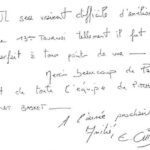 Il sera vraiment difficile d'améliorer
13ème Tournoi tellement il fut
parfait à tous point de vue
Merci beaucoup de
de toute l'équipe de
BASKET
A l'année prochaine
Amitié